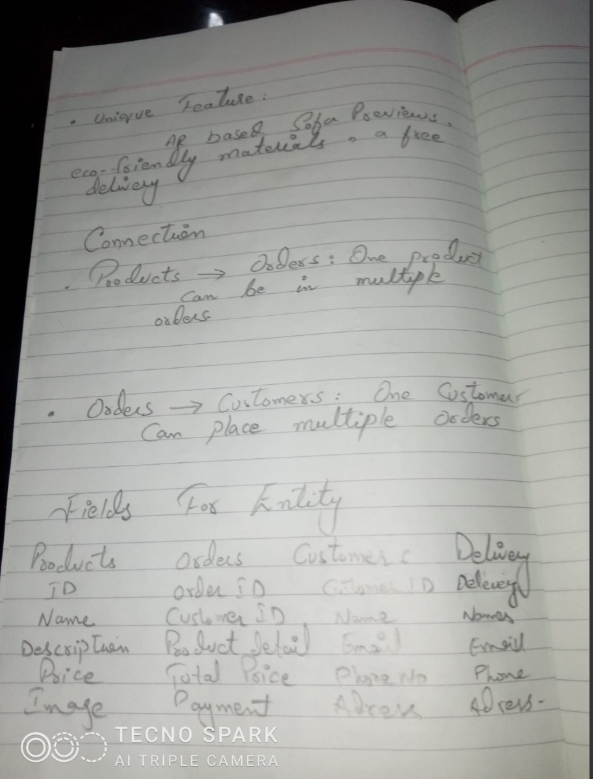 • Unique Feature:
AR based Sofa Previews,
eco-friendly materials, a free
delivery
Connection
• Products → Orders: One product
can be in multiple
orders
• Orders → Customers: One Customer
Can place multiple orders
Fields For Entity
Products Orders Customers Delivery
ID order ID Customer ID Delivery
Name Customer ID Name Names
Description Product detail Email Email
Price Total Price Phone No Phone
Image Payment Adress Adress
TECNO SPARK
AI TRIPLE CAMERA